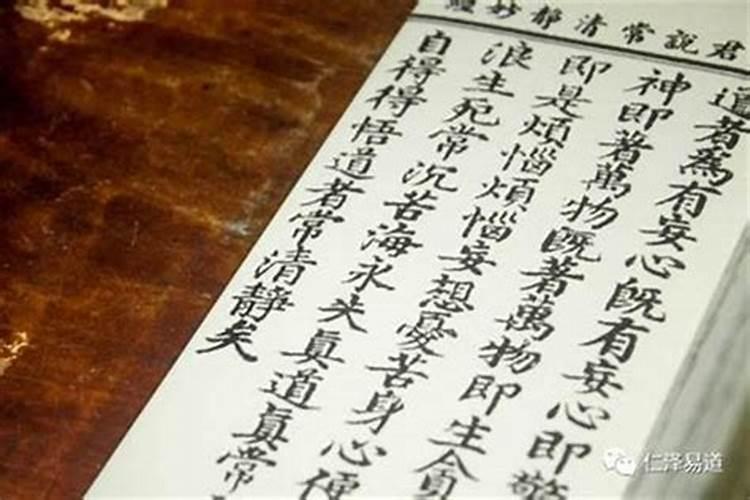 君說常清靜妙經
道者為有妄心既有妄心即驚
神即著萬物既著萬物即生貪
即是煩惱煩惱妄想憂苦身心便
浪生死常沉苦海永失眞道眞常
自得得悟道者常清靜矣
仁泽易道